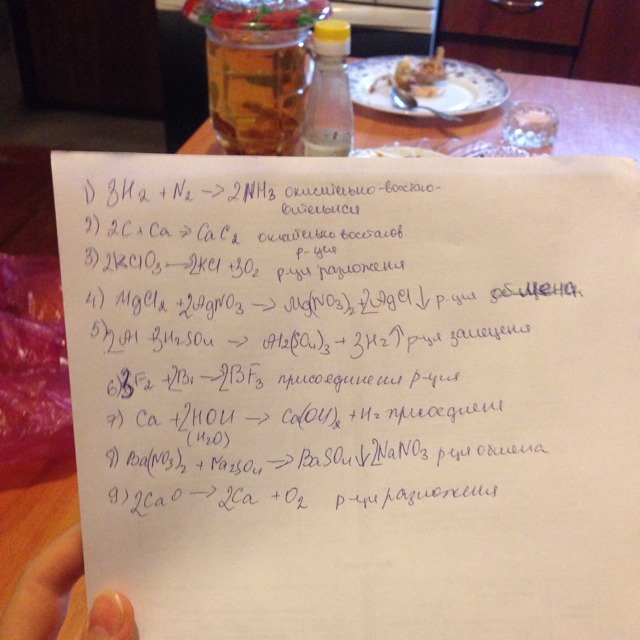 1) 3H2 + N2 → 2NH3 окислительно-востано-
вительная
2) 2C + Ca → CaC2 окислительно востанов
р-ция
3) 2KClO3 → 2KCl + 3O2 р-ция разложения
4) MgCl2 + 2AgNO3 → Mg(NO3)2 + 2AgCl↓ р-ция обмена
5) 2Al 3H2SO4 → Al2(SO4)3 + 3H2↑ р-ция замещения
6) 3F2 + 2B → 2BF3 присоединения р-ция
7) Ca + 2HOH → Ca(OH)2 + H2 присоединен
(H2O)
8) Ba(NO3)2 + Na2SO4 → BaSO4↓ 2NaNO3 р-ция обмена
9) 2CaO → 2Ca + O2 р-ция разложения